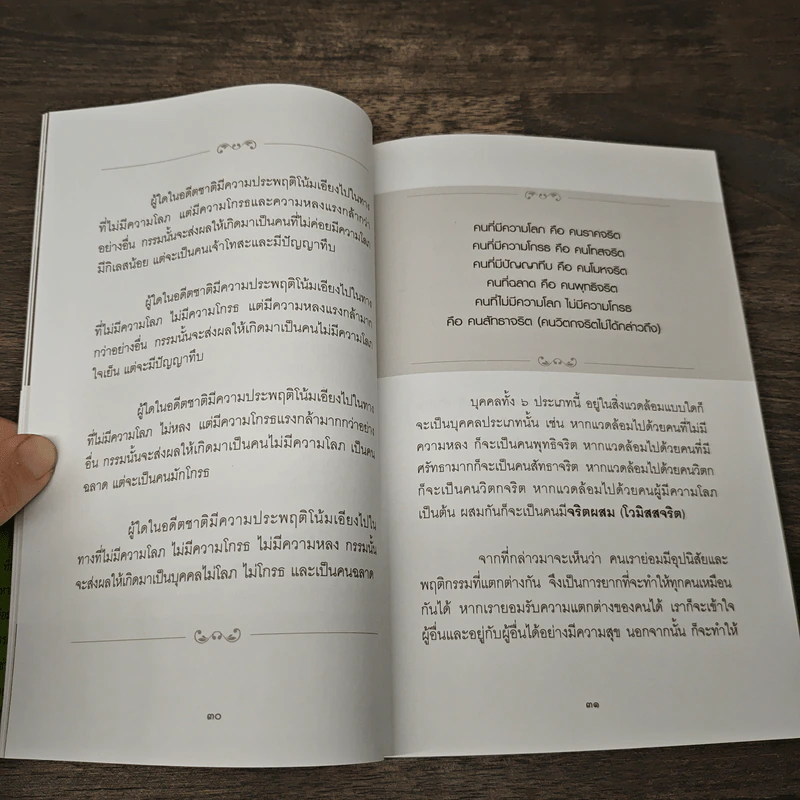 ผู้ใดในอดีตชาติมีความประพฤติโน้มเอียงไปในทาง
ที่ไม่มีความโลภ แต่มีความโกรธและความหลงแรงกล้ากว่า
อย่างอื่น กรรมนั้นจะส่งผลให้เกิดมาเป็นคนที่ไม่ค่อยมีความโลภ
มีกิเลสน้อย แต่จะเป็นคนเจ้าโทสะและมีปัญญาทึบ
ผู้ใดในอดีตชาติมีความประพฤติโน้มเอียงไปในทาง
ที่ไม่มีความโลภ ไม่มีความโกรธ แต่มีความหลงแรงกล้ามาก
กว่าอย่างอื่น กรรมนั้นจะส่งผลให้เกิดมาเป็นคนไม่มีความโลภ
ใจเย็น แต่จะมีปัญญาทึบ
ผู้ใดในอดีตชาติมีความประพฤติโน้มเอียงไปในทาง
ที่ไม่มีความโลภ ไม่หลง แต่มีความโกรธแรงกล้ามากกว่าอย่าง
อื่น กรรมนั้นจะส่งผลให้เกิดมาเป็นคนไม่มีความโลภ เป็นคน
ฉลาด แต่จะเป็นคนมักโกรธ
ผู้ใดในอดีตชาติมีความประพฤติโน้มเอียงไปใน
ทางที่ไม่มีความโลภ ไม่มีความโกรธ ไม่มีความหลง กรรมนั้น
จะส่งผลให้เกิดมาเป็นบุคคลไม่โลภ ไม่โกรธ และเป็นคนฉลาด
๓๐
คนที่มีความโลภ คือ คนราคจริต
คนที่มีความโกรธ คือ คนโทสจริต
คนที่มีปัญญาทึบ คือ คนโมหจริต
คนที่ฉลาด คือ คนพุทธิจริต
คนที่ไม่มีความโลภ ไม่มีความโกรธ
คือ คนสัทธาจริต (คนวิตกจริตไม่ได้กล่าวถึง)
บุคคลทั้ง ๖ ประเภทนี้ อยู่ในสิ่งแวดล้อมแบบใดก็
จะเป็นบุคคลประเภทนั้น เช่น หากแวดล้อมไปด้วยคนที่ไม่มี
ความหลง ก็จะเป็นคนพุทธิจริต หากแวดล้อมไปด้วยคนที่มี
ศรัทธามากก็จะเป็นคนสัทธาจริต หากแวดล้อมไปด้วยคนวิตก
ก็จะเป็นคนวิตกจริต หากแวดล้อมไปด้วยคนผู้มีความโลภ
เป็นต้น ผสมกันก็จะเป็นคนมีจริตผสม (โวมิสสจริต)
จากที่กล่าวมาจะเห็นว่า คนเราย่อมมีอุปนิสัยและ
พฤติกรรมที่แตกต่างกัน จึงเป็นการยากที่จะทำให้ทุกคนเหมือน
กันได้ หากเรายอมรับความแตกต่างของคนได้ เราก็จะเข้าใจ
ผู้อื่นและอยู่กับผู้อื่นได้อย่างมีความสุข นอกจากนั้น ก็จะทำให้
๓๑